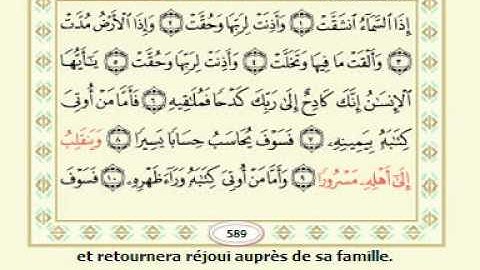 إِذَا ٱلسَّمَآءُ ٱنشَقَّتْ ١ وَأَذِنَتْ لِرَبِّهَا وَحُقَّتْ ٢ وَإِذَا ٱلْأَرْضُ مُدَّتْ
٣ وَأَلْقَتْ مَا فِيهَا وَتَخَلَّتْ ٤ وَأَذِنَتْ لِرَبِّهَا وَحُقَّتْ ٥ يَٰٓأَيُّهَا
ٱلْإِنسَٰنُ إِنَّكَ كَادِحٌ إِلَىٰ رَبِّكَ كَدْحًا فَمُلَٰقِيهِ ٦ فَأَمَّا مَنْ أُوتِىَ
كِتَٰبَهُۥ بِيَمِينِهِۦ ٧ فَسَوْفَ يُحَاسَبُ حِسَابًا يَسِيرًا ٨ وَيَنقَلِبُ
إِلَىٰٓ أَهْلِهِۦ مَسْرُورًا ٩ وَأَمَّا مَنْ أُوتِىَ كِتَٰبَهُۥ وَرَآءَ ظَهْرِهِۦ ١٠ فَسَوْفَ
589
et retournera réjoui auprès de sa famille.